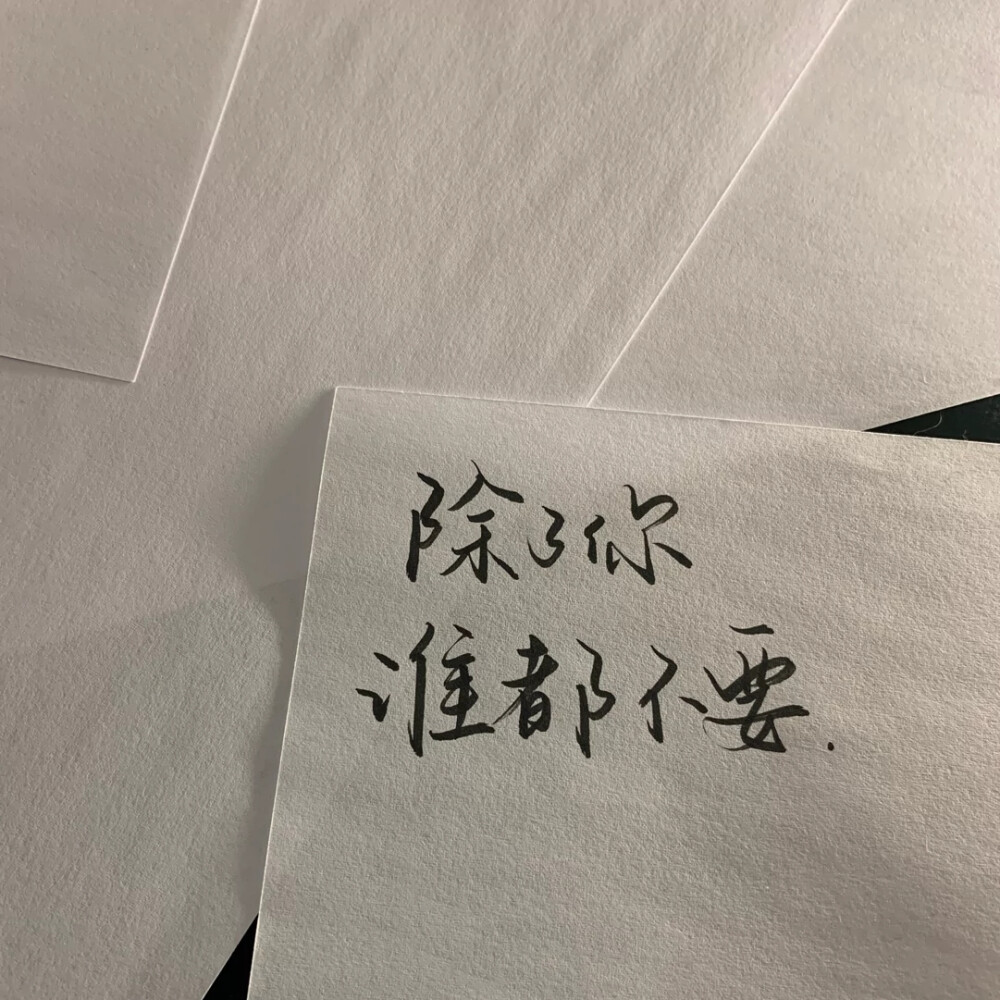 除了你
谁都不要.